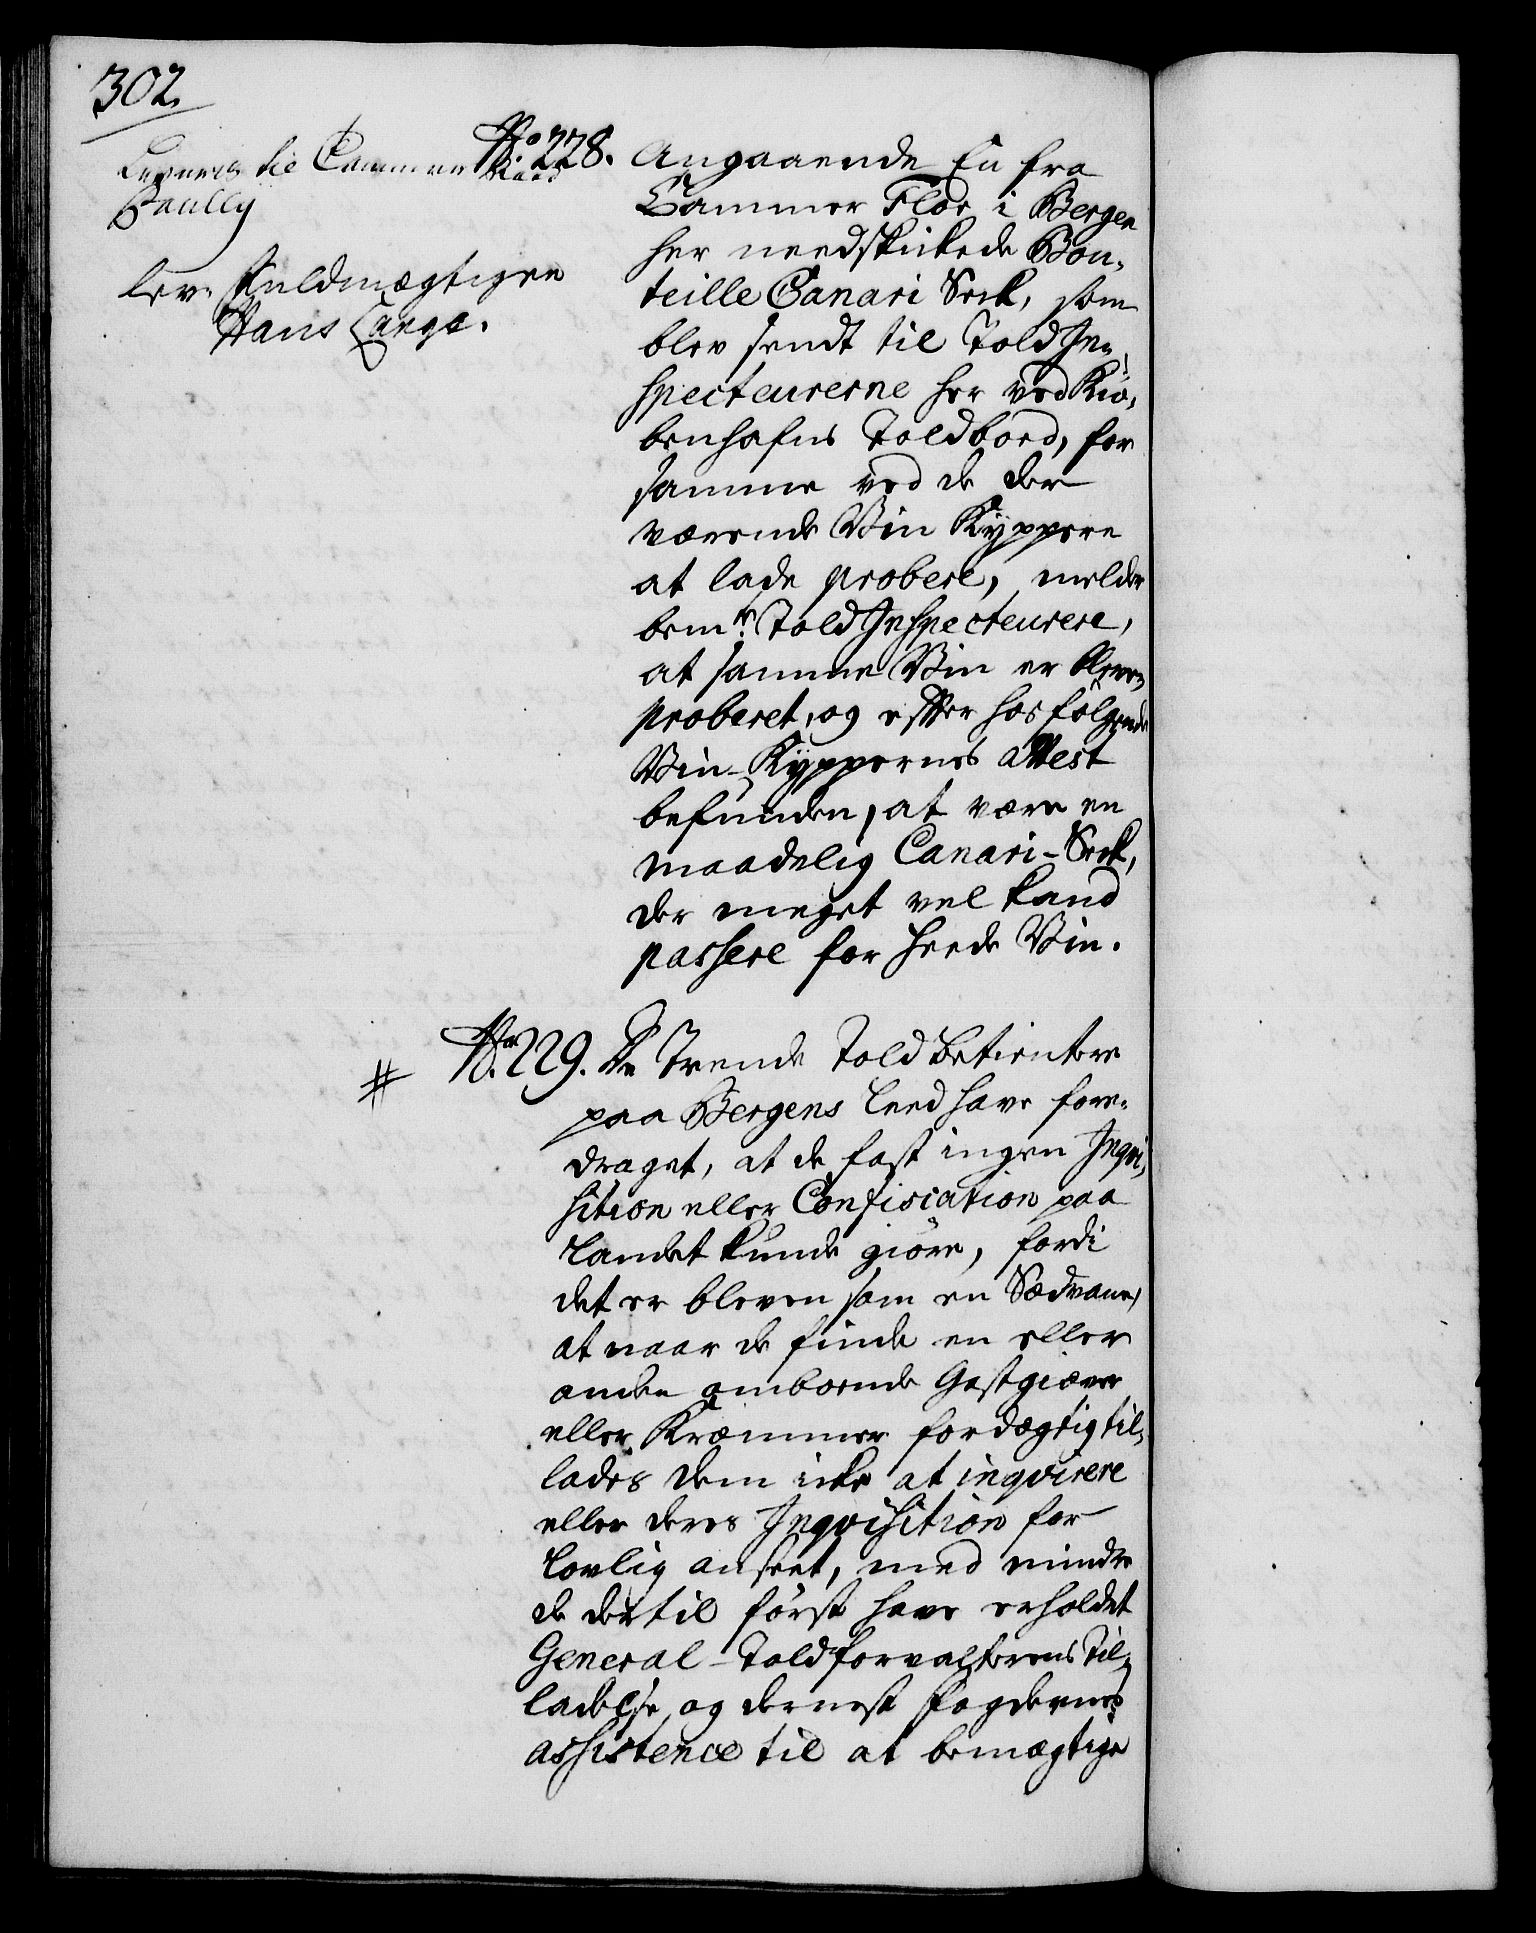 302.
Leveres til Cammer Raad
Paully
lev. Fuldmægtigen
Hans Lange.
No. 228. Angaaende En fra
Cammer Flor i Bergen
her needskikede Bou-
teille Canari Seck, som
blev sendt til Told In-
specteurerne her ved Kiø-
benhafns Toldboed, for
samme ved de der
værende Vin Kyppere
at lade probere, melder
bemte Told Inspecteurere,
at samme Vin er bleven
proberet, og efter hosfølgende
Vin-Kyppernes attest
befunden, at være en
maadelig Canari-Seck,
der meget vel kand
passere for heede Vin.
# No. 229. De Trende Told Betientere
paa Bergens Leed have fore-
draget, at de fast ingen Inqvi-
sition eller Confisication paa
Landet kunde giøre, fordi
det er bleven som en Sædvane,
at naar de finde en eller
anden omboende Gestgiæver
eller Kræmmer fordægtig til-
lades dem icke at inqvirere
eller deres Inqvisition for
Lovlig anseet, med mindre
de dertil først have erholdet
General-Toldforvalterens Til-
ladelse, og dernest Fogdernes
assistence til at bemægtige